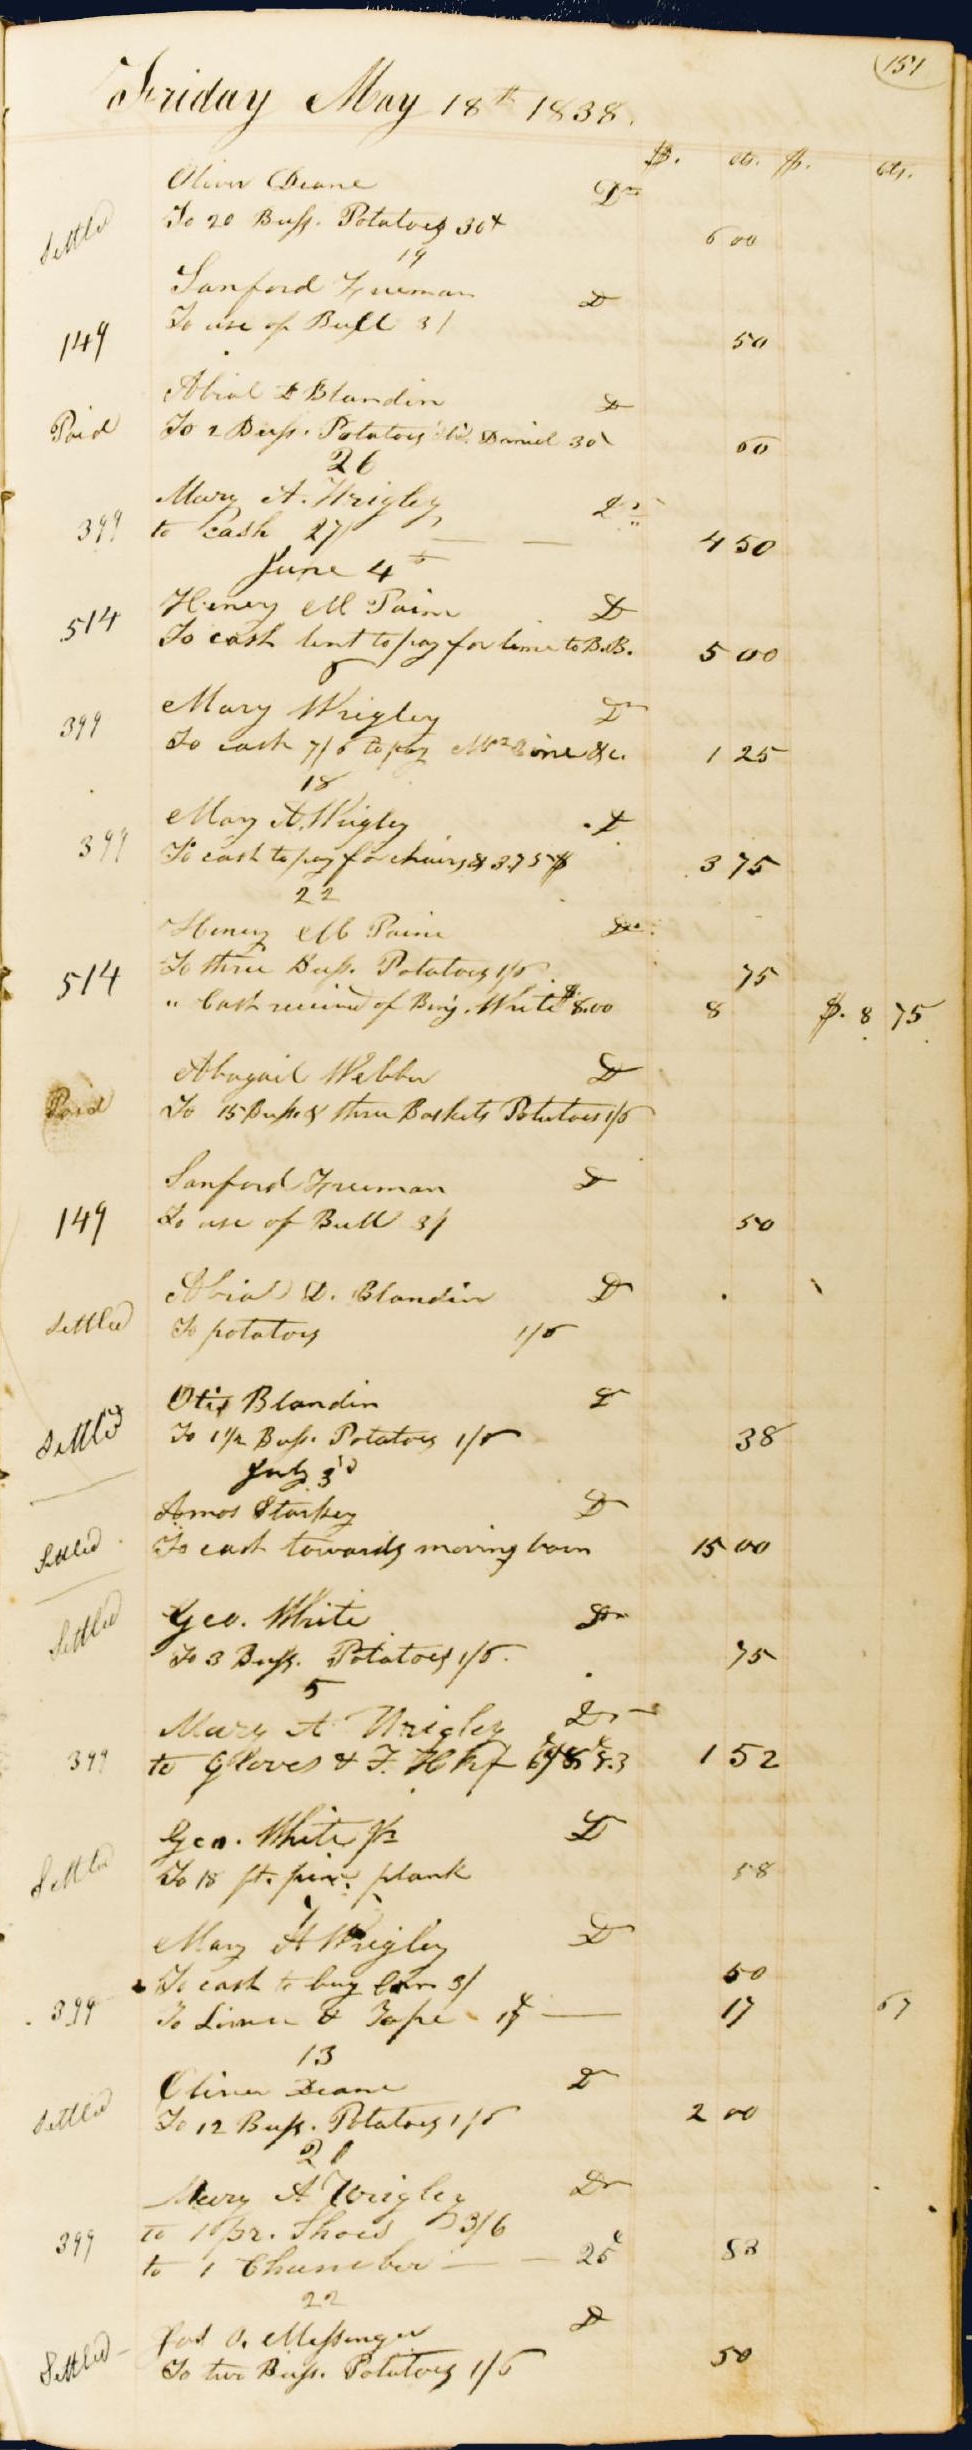 151
Friday May 18th 1838.
$. cts. $. cts.
Oliver Deane Dr
Settled To 20 Bush. Potatoes 30¢ 6 00
19
Sanford Freeman D
149 To use of Bull 3/ 50
Abial D Blandin D
Paid To 2 Bush. Potatoes Daniel 30 60
26
Mary A. Wrigley Dr
399 to cash 27/ 4 50
June 4th
514 Henry M Paine D
To cash lent to pay for lime to B.B. 5 00
6
399 Mary Wrigley Dr
To cash 7/6 to pay &c. 1 25
18
Mary A. Wrigley D
399 To cash to pay for chairs 3.75 3 75
22
Henry M Paine Dr.
514 To three Bush. Potatoes 1/6 75
" Cash received of Benj. White $8.00 8 $. 8 75
Abagail Webber D
Paid To 15 Bush & three Baskets Potatoes 1/6
Sanford Freeman D
149 To use of Bull 3/ 50
Abial D. Blandin D
Settled To potatoes 1/6
Otis Blandin D
Settled To 1 1/2 Bush. Potatoes 1/6 38
July 3'd
Amos Starkey D
Settled To cash towards moving barn 15 00
Settled Geo. White Dr
To 3 Bush. Potatoes 1/6. 75
5
Mary A Wrigley Dr
399 to Gloves & F. Hkf 1 52
Geo. White Jr D
Settled To 18 ft. pine plank 58
7
Mary A Wrigley D
To cash to buy 3/ 50
399 To Linen & Tape 17¢ 17 67
13
Oliver Deane D
Settled To 12 Bush. Potatoes 1/6 2 00
20
Mary A Wrigley Dr
399 to 1 pr. Shoes 3/6
to 1 Chamber 25¢ 83
22
O. Messenger D
Settled To two Bush. Potatoes 1/6 50